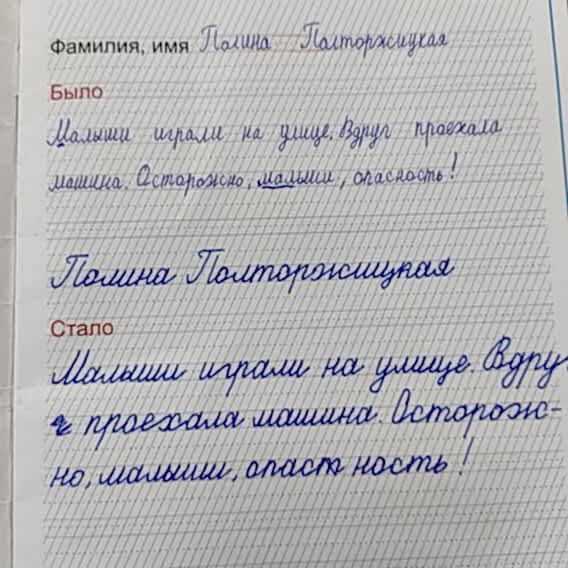 Фамилия, имя Полина Полторжицкая
Было
Малыши играли на улице. Вдруг проехала
машина. Осторожно, малыши, опасность!
Полина Полторжицкая
Стало
Малыши играли на улице. Вдру
г проехала машина. Осторож-
но, малыши, опаст ность!